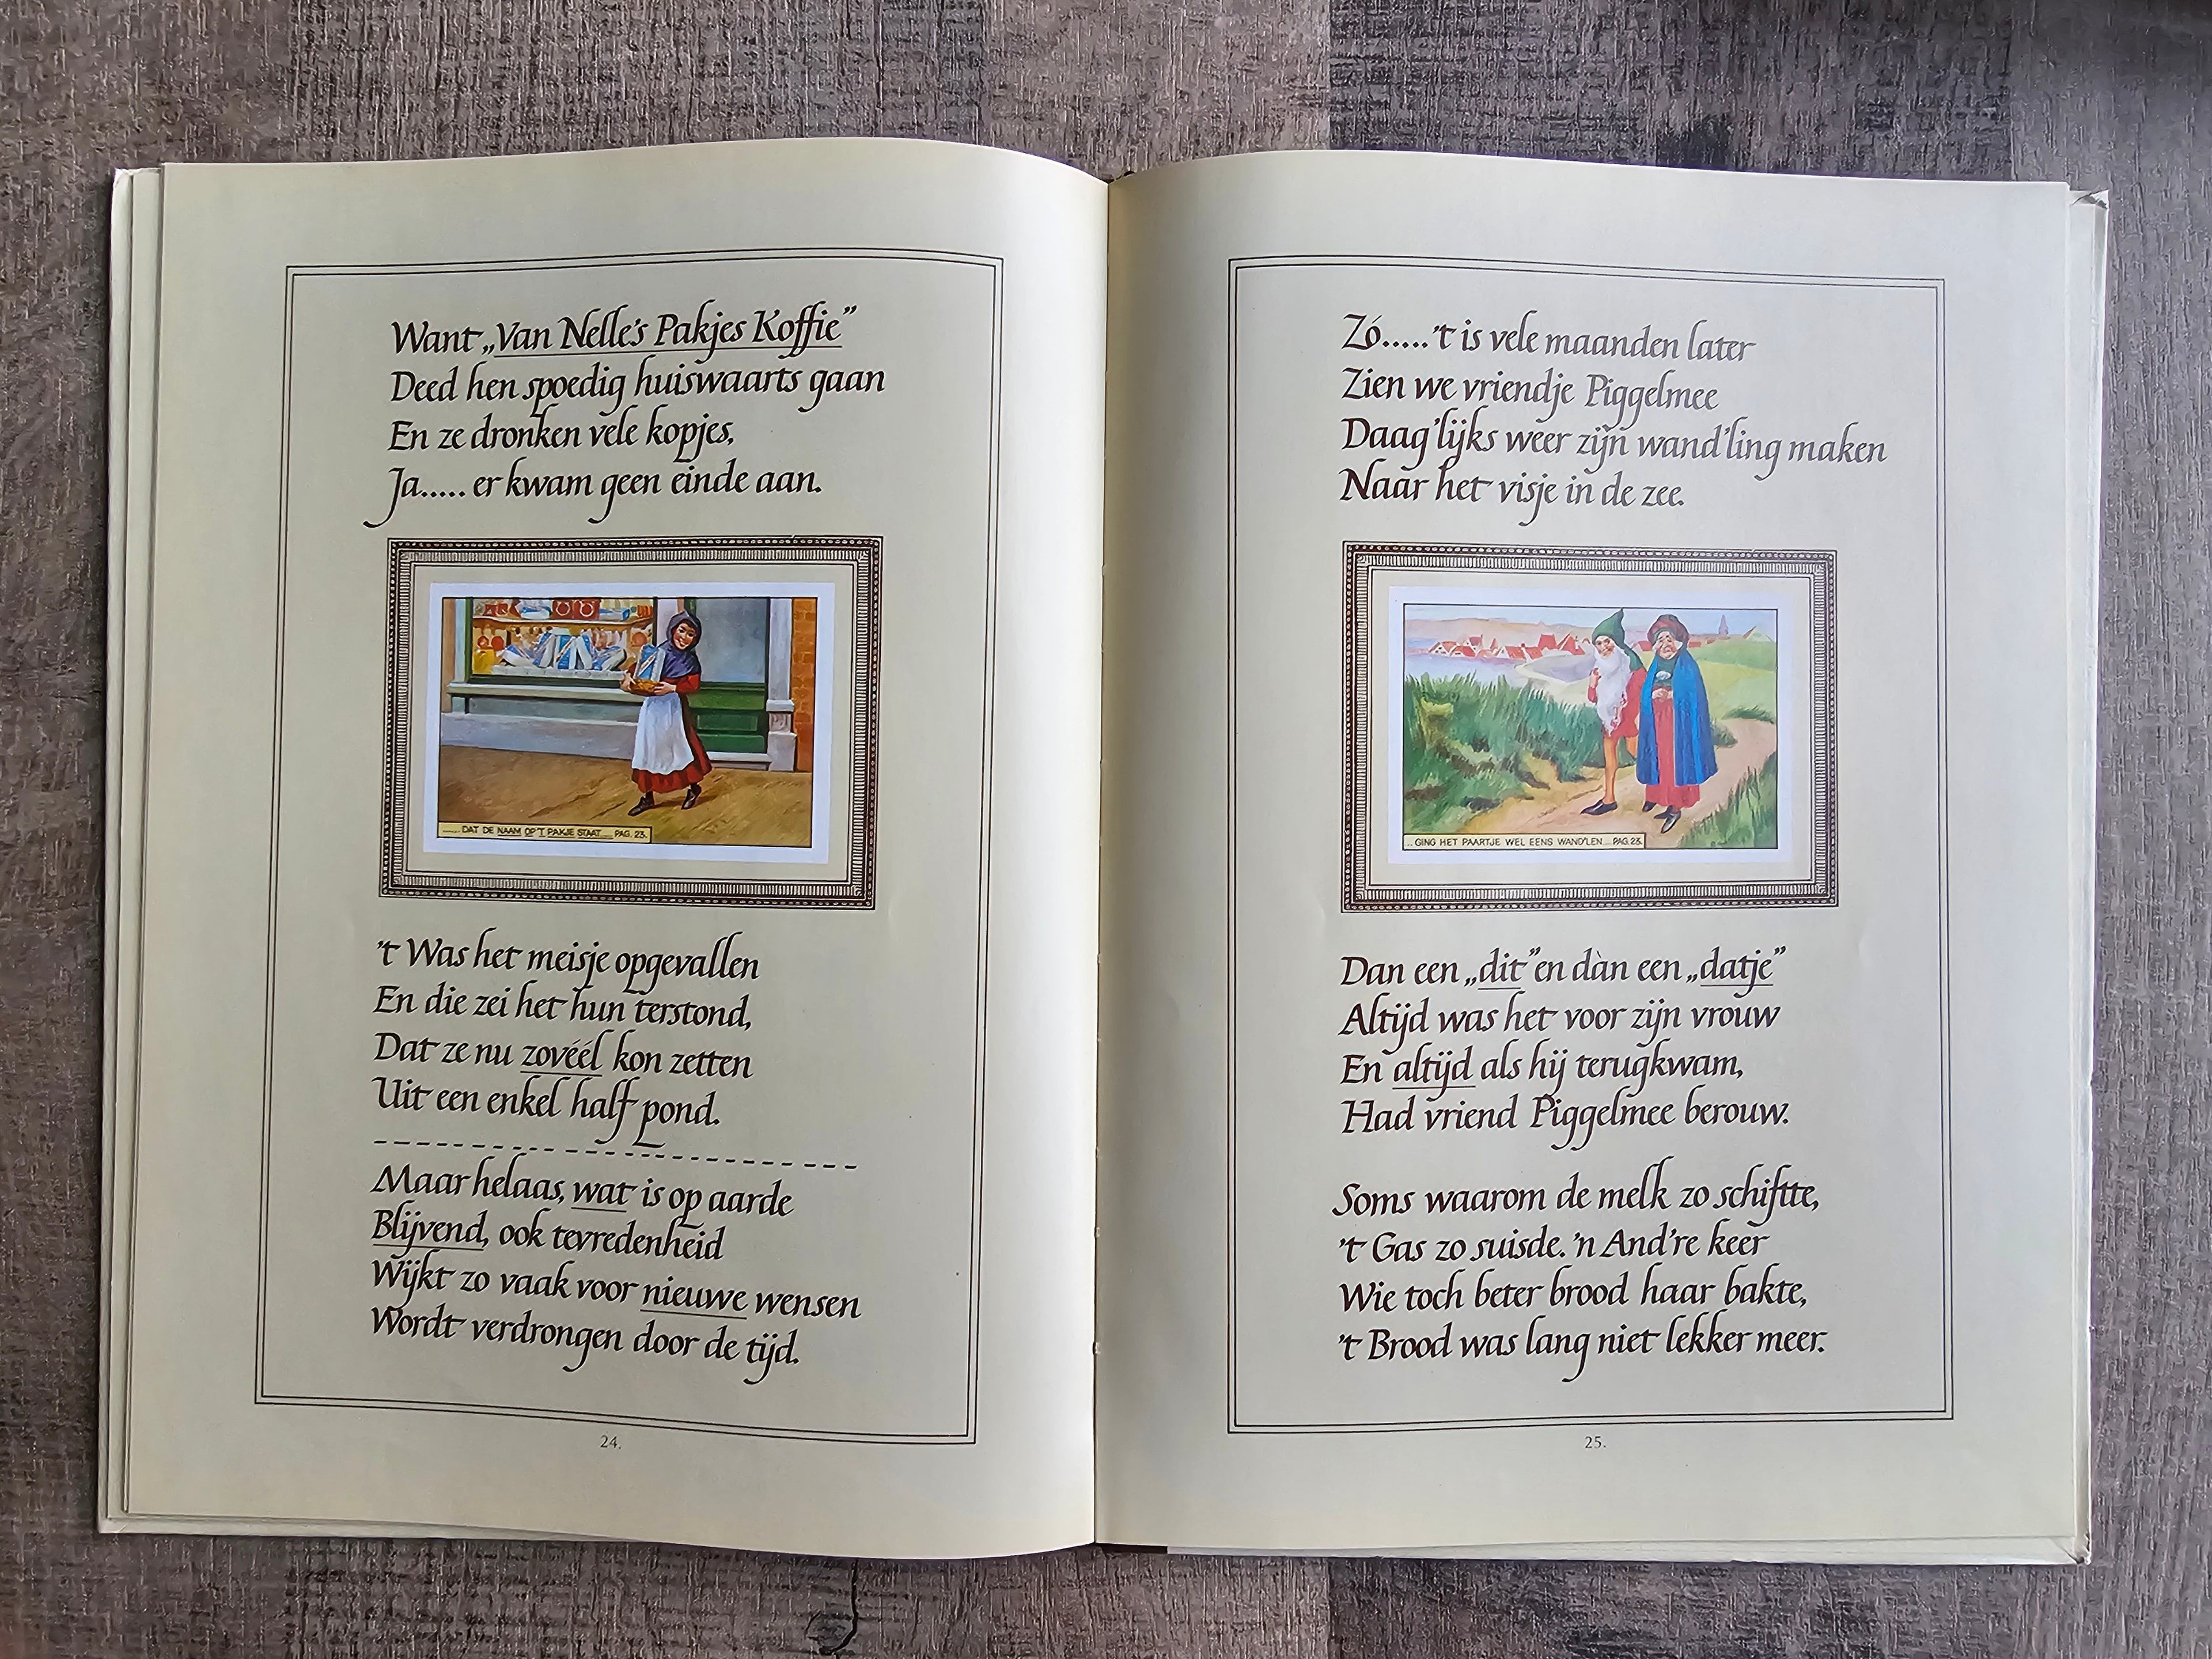 Want „Van Nelle's Pakjes Koffie”
Deed hen spoedig huiswaarts gaan
En ze dronken vele kopjes,
Ja..... er kwam geen einde aan.
...... DAT DE NAAM OP 'T PAKJE STAAT..... PAG. 23.
't Was het meisje opgevallen
En die zei het hun terstond,
Dat ze nu zovéél kon zetten
Uit een enkel half pond.
Maar helaas, wat is op aarde
Blijvend, ook tevredenheid
Wijkt zo vaak voor nieuwe wensen
Wordt verdrongen door de tijd.
24.
Zó.....'t is vele maanden later
Zien we vriendje Piggelmee
Daag'lijks weer zijn wand'ling maken
Naar het visje in de zee.
.. GING HET PAARTJE WEL EENS WAND'LEN.... PAG. 23.
Dan een „dit” en dàn een „datje”
Altijd was het voor zijn vrouw
En altijd als hij terugkwam,
Had vriend Piggelmee berouw.
Soms waarom de melk zo schiftte,
't Gas zo suisde. 'n And're keer
Wie toch beter brood haar bakte,
't Brood was lang niet lekker meer.
25.